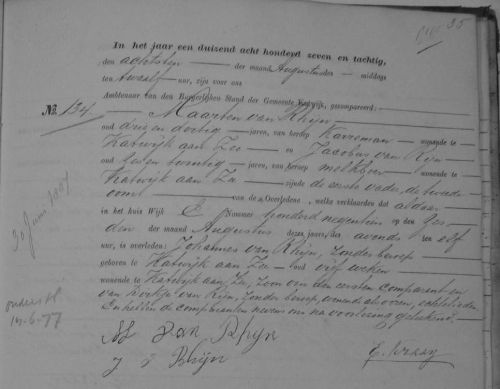 35
In het jaar een duizend acht honderd zeven en tachtig,
den achtsten der maand Augustus des middags
ten twaalf uur, zijn voor ons
Ambtenaar van den Burgerlijken Stand der Gemeente Katwijk, gecompareerd:
No. 134 Maarten van Rhijn
oud drie en dertig jaren, van beroep wonende te
Katwijk aan Zee en Jacobus van Rijn
oud en twintig jaren, van beroep melkboer wonende te
Katwijk aan Zee zijnde de eerste vader, de tweede
oom van de Overledene, welke verklaarden dat aldaar
in het huis Wijk E Nommer honderd negentien op den zes
den der maand Augustus dezes jaars, des avonds ten elf
uur, is overleden: Johannes van Rhijn, zonder beroep
geboren te Katwijk aan Zee oud vijf weken
wonende te Katwijk aan Zee, zoon van den eersten comparant en
van van Rijn, zonder beroep, wonende als voren, echtelieden
En hebben de comparanten nevens ons na voorlezing geteekend.
M van Rhijn
J v Rhijn
30 Juni
14-6-77